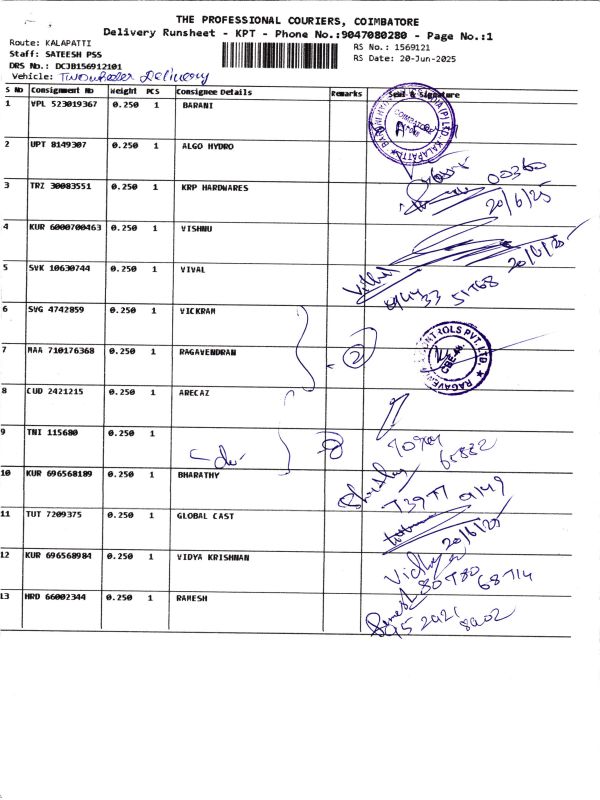 THE PROFESSIONAL COURIERS, COIMBATORE
Delivery Runsheet - KPT - Phone No.:9047080280 - Page No.:1
Route: KALAPATTI
RS No.: 1569121
Staff: SATEESH PSS
RS Date: 20-Jun-2025
DRS No.: DCJB156912101
Vehicle: Twowheeler Delivery
S No Consignment No Weight PCS Consignee Details Remarks Seal & Signature
1 VPL 523019367 0.250 1 BARANI
2 UPT 8149307 0.250 1 ALGO HYDRO
00360
3 TRZ 30083551 0.250 1 KRP HARDWARES
20/6/25
4 KUR 6000700463 0.250 1 VISHNU
20/6/25
5 SVK 10630744 0.250 1 VIVAL
6 SVG 4742859 0.250 1 VICKRAM
7 MAA 710176368 0.250 1 RAGAVENDRAN
2
8 CUD 2421215 0.250 1 ARECAZ
9 TNI 115680 0.250 1
10 KUR 696568189 0.250 1 BHARATHY
11 TUT 7209375 0.250 1 GLOBAL CAST
20/6/25
12 KUR 696568984 0.250 1 VIDYA KRISHNAN
Vidhya
80780 68714
13 HRD 66002344 0.250 1 RAMESH
Ramesh
95 2921
8902